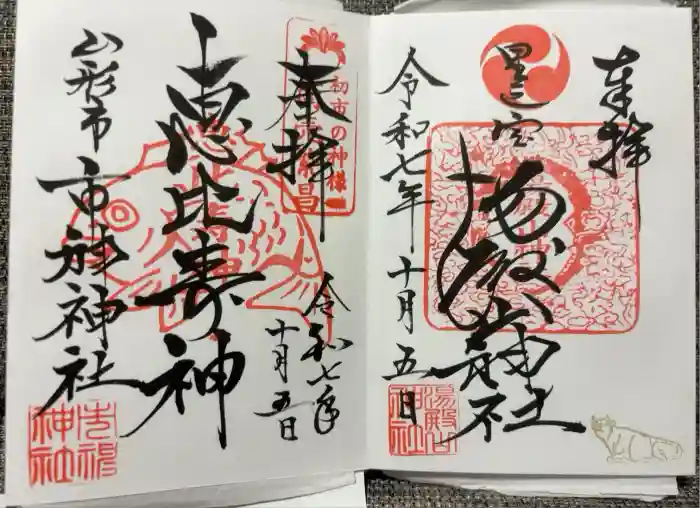 奉拝
里之宮
湯殿山神社
令和七年十月五日
湯殿山神社
奉拝
初市の神様
令和七年
十月五日
恵比寿神
山形市
市神神社
市神神社